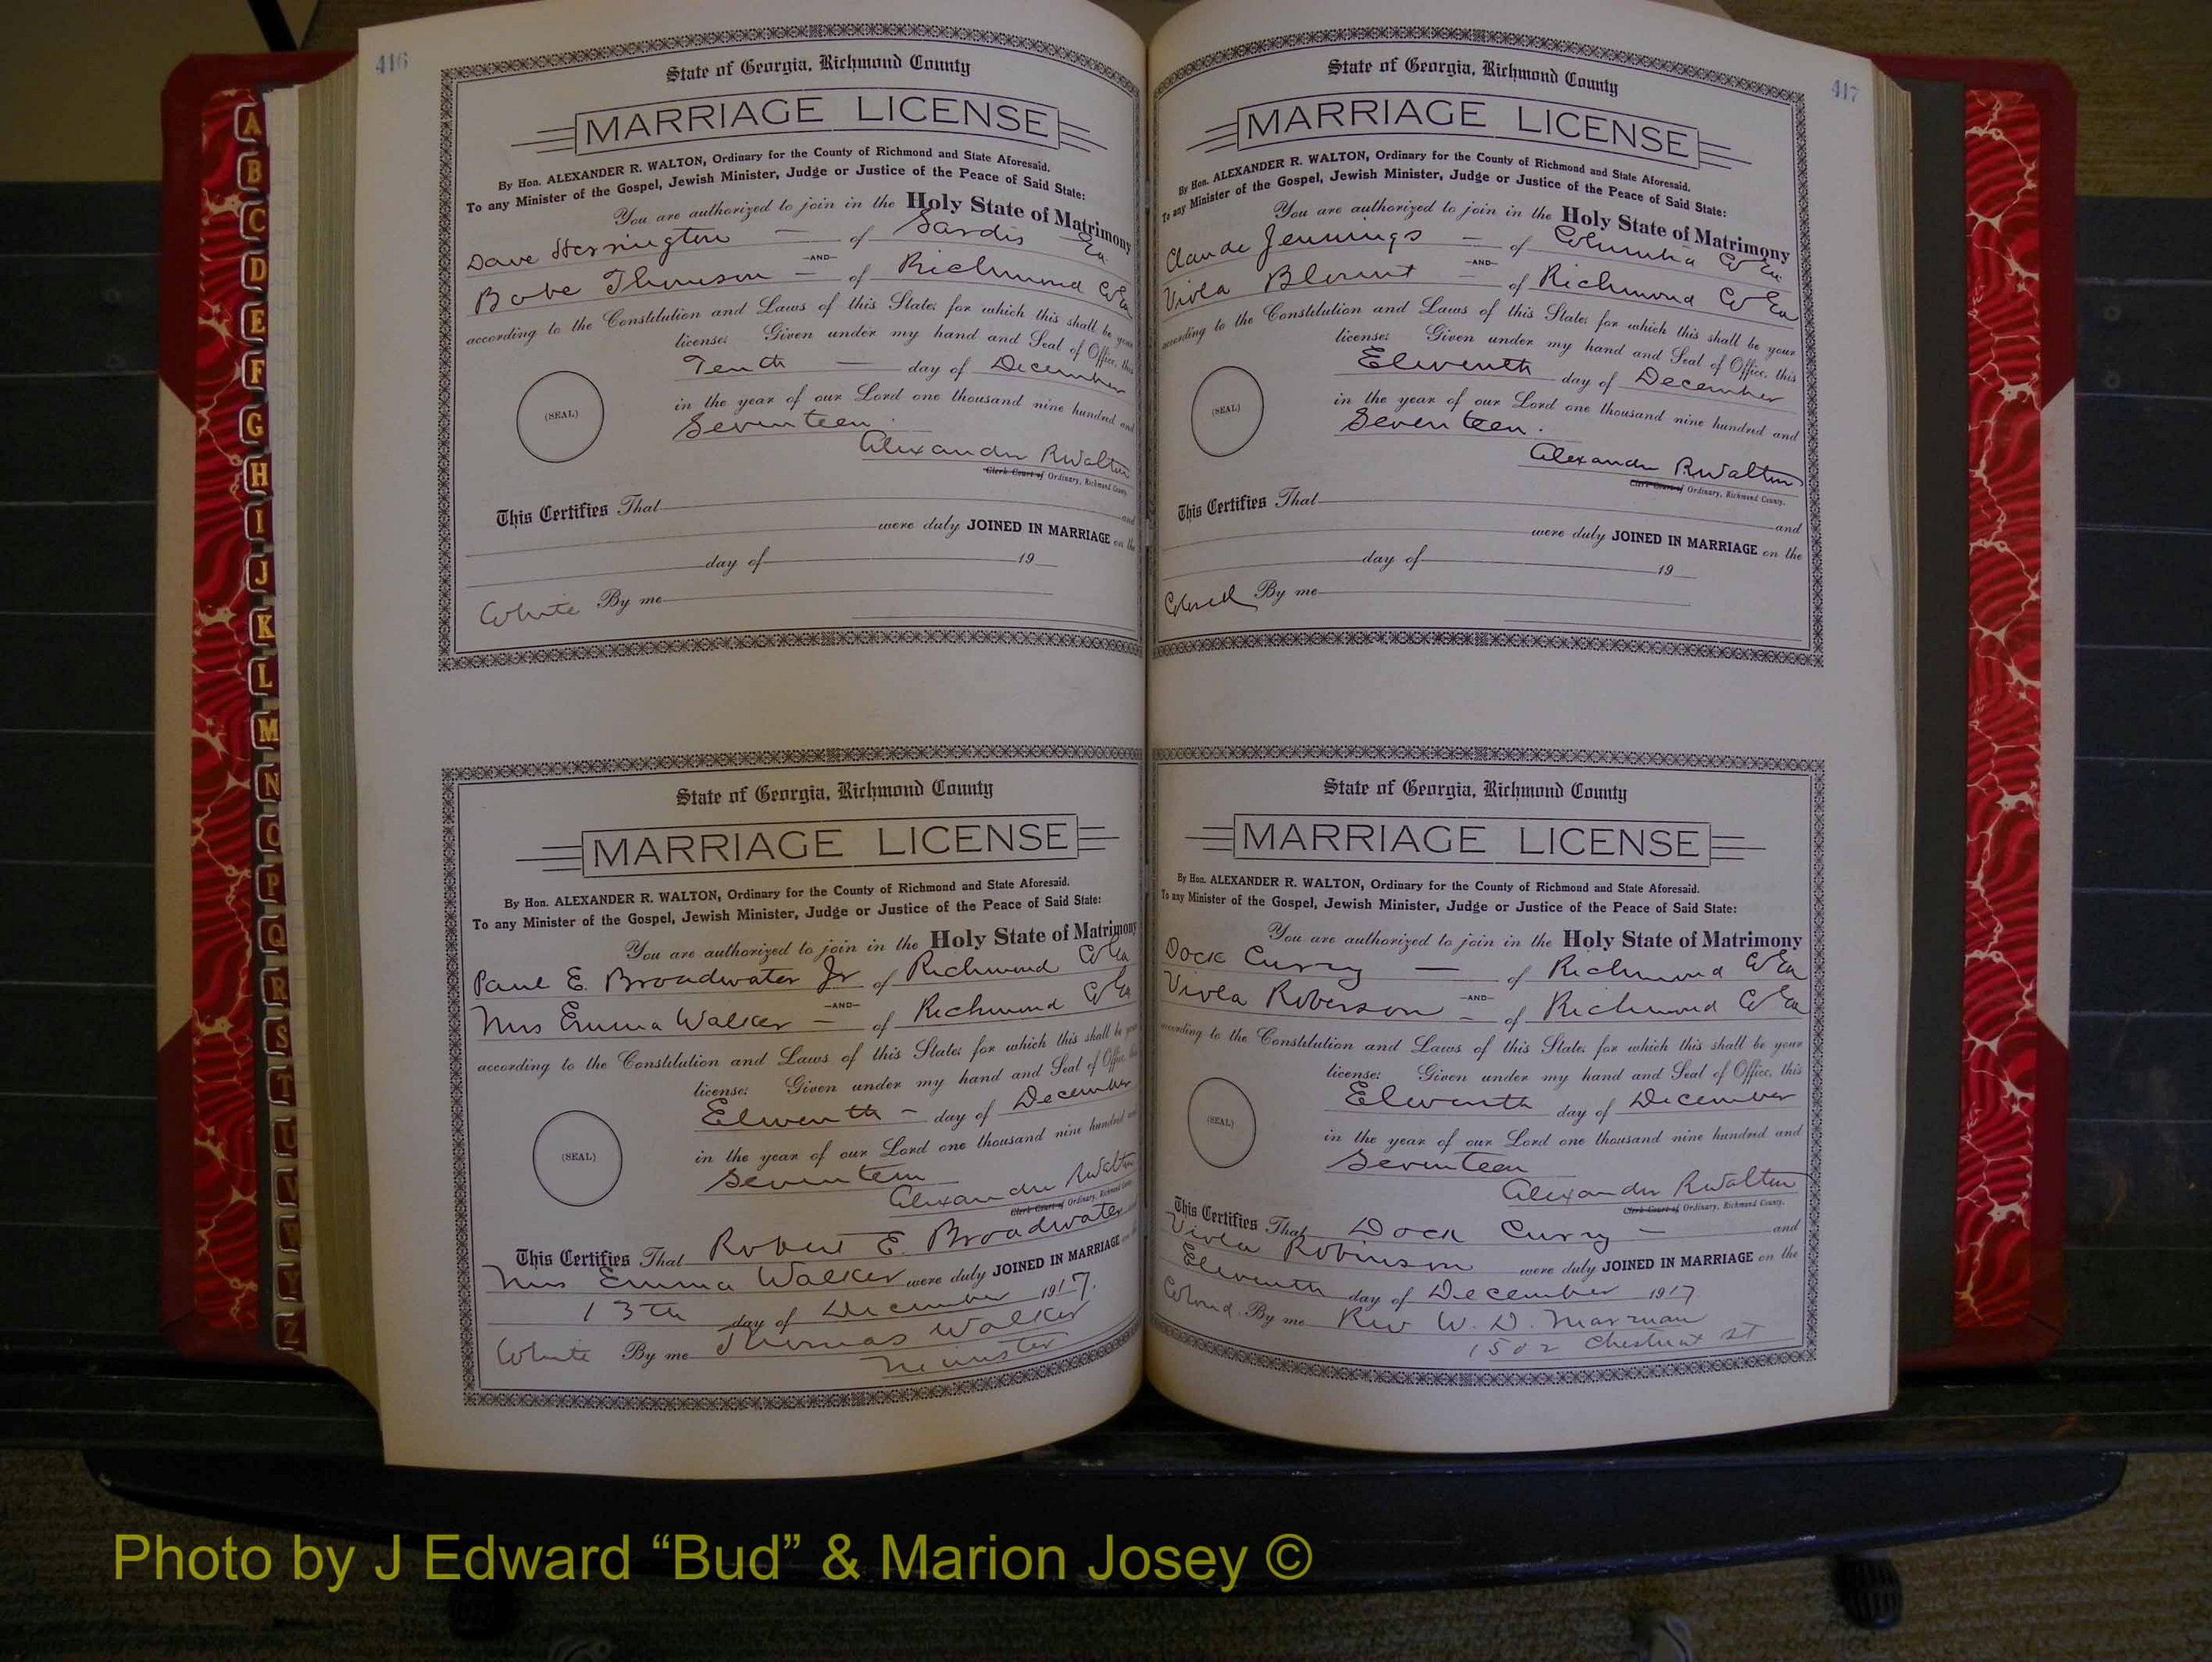 416
State of Georgia, Richmond County
MARRIAGE LICENSE
By Hon. ALEXANDER R. WALTON, Ordinary for the County of Richmond and State Aforesaid.
To any Minister of the Gospel, Jewish Minister, Judge or Justice of the Peace of Said State:
You are authorized to join in the Holy State of Matrimony
Dave Herrington — of Sardis Ga
—AND—
Babe Thomson — of Richmond Co Ga
according to the Constitution and Laws of this State; for which this shall be your
license: Given under my hand and Seal of Office, this
Tenth — day of December
in the year of our Lord one thousand nine hundred and
Seventeen.
(SEAL)
Alexander R Walton
Clerk Court of Ordinary, Richmond County.
This Certifies That and
were duly JOINED IN MARRIAGE on the
day of 19
White By me
State of Georgia, Richmond County
MARRIAGE LICENSE
By Hon. ALEXANDER R. WALTON, Ordinary for the County of Richmond and State Aforesaid.
To any Minister of the Gospel, Jewish Minister, Judge or Justice of the Peace of Said State:
You are authorized to join in the Holy State of Matrimony
Paul E. Broadwater Jr of Richmond Co Ga
—AND—
Mrs Emma Walker — of Richmond Co Ga
according to the Constitution and Laws of this State; for which this shall be your
license: Given under my hand and Seal of Office, this
Eleventh — day of December
in the year of our Lord one thousand nine hundred and
Seventeen
(SEAL)
Alexander R Walton
Clerk Court of Ordinary, Richmond County.
This Certifies That Robert E. Broadwater
Mrs Emma Walker were duly JOINED IN MARRIAGE on the
13th day of December 1917.
White By me Thomas Walker
Minister
417
State of Georgia, Richmond County
MARRIAGE LICENSE
By Hon. ALEXANDER R. WALTON, Ordinary for the County of Richmond and State Aforesaid.
To any Minister of the Gospel, Jewish Minister, Judge or Justice of the Peace of Said State:
You are authorized to join in the Holy State of Matrimony
Claude Jennings — of Columbia Co Ga
—AND—
Viola Blount — of Richmond Co Ga
according to the Constitution and Laws of this State; for which this shall be your
license: Given under my hand and Seal of Office, this
Eleventh day of December
in the year of our Lord one thousand nine hundred and
Seventeen.
(SEAL)
Alexander R Walton
Clerk Court of Ordinary, Richmond County.
This Certifies That and
were duly JOINED IN MARRIAGE on the
day of 19
Colored By me
State of Georgia, Richmond County
MARRIAGE LICENSE
By Hon. ALEXANDER R. WALTON, Ordinary for the County of Richmond and State Aforesaid.
To any Minister of the Gospel, Jewish Minister, Judge or Justice of the Peace of Said State:
You are authorized to join in the Holy State of Matrimony
Dock Curry — of Richmond Co Ga
—AND—
Viola Roberson — of Richmond Co Ga
according to the Constitution and Laws of this State; for which this shall be your
license: Given under my hand and Seal of Office, this
Eleventh day of December
in the year of our Lord one thousand nine hundred and
Seventeen
(SEAL)
Alexander R Walton
Clerk Court of Ordinary, Richmond County.
This Certifies That Dock Curry — and
Viola Robinson were duly JOINED IN MARRIAGE on the
Eleventh day of December 1917
Colored By me Rev W. D. Marman
1502 Chestnut St
A
B
C
D
E
F
G
H
I
J
K
L
M
N
O
P
Q
R
S
T
U
V
W
Y
Z
Photo by J Edward “Bud” & Marion Josey ©